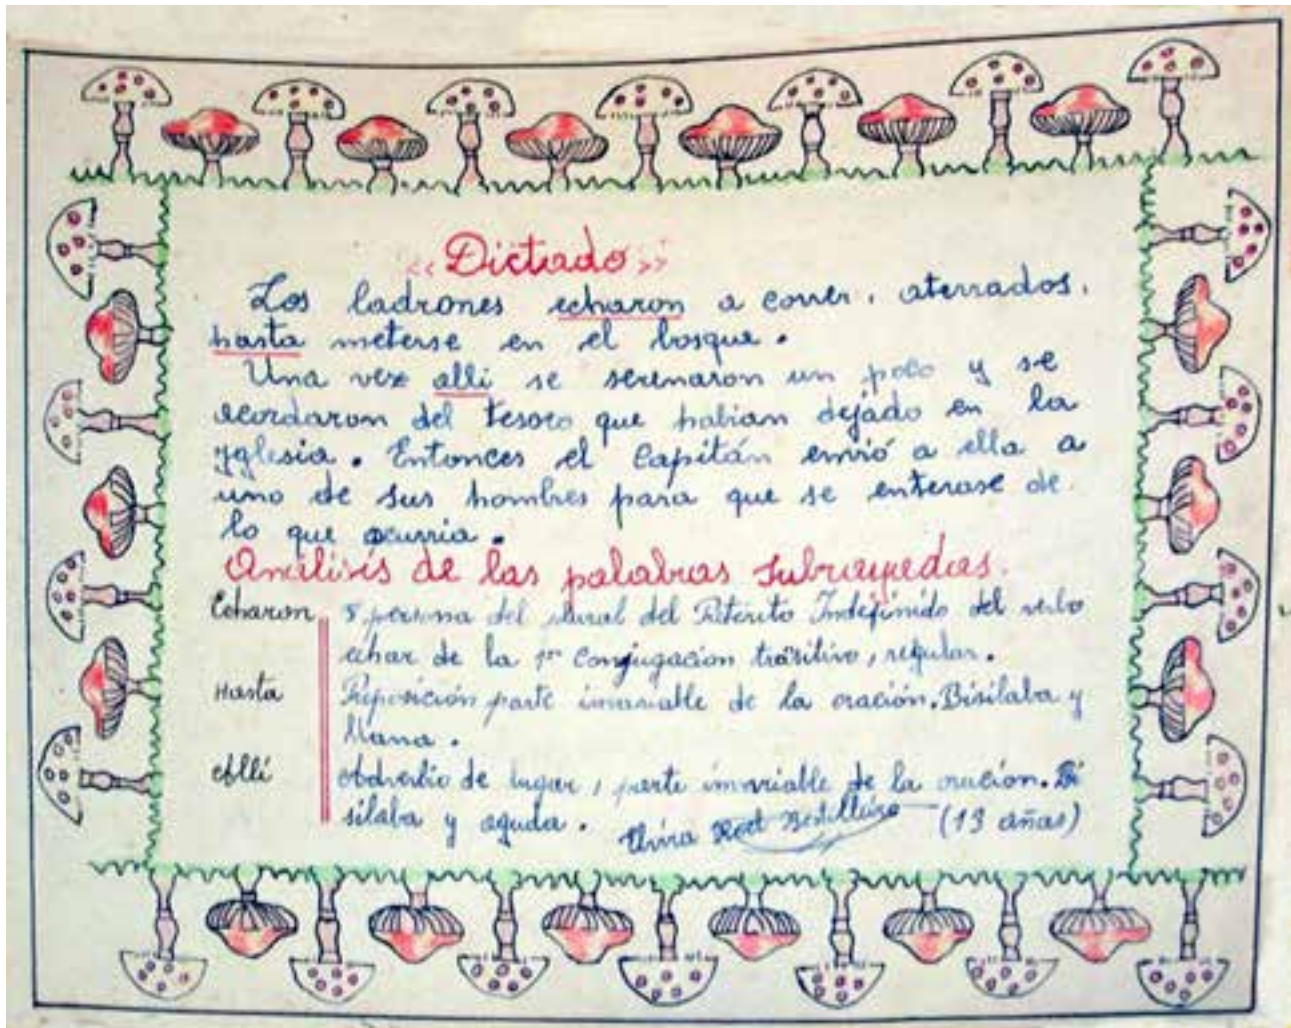 «Dictado»
Los ladrones echaron a correr, aterrados,
hasta meterse en el bosque.
Una vez alli se serenaron un poco y se
acordaron del tesoro que habian dejado en la
yglesia. Entonces el Capitán envió a ella a
uno de sus hombres para que se enterase de
lo que ocurria.
Análisis de las palabras subrayadas.
Echaron persona del plural del Pretérito Indefinido del verbo
echar de la 1ª conjugacion, regular.
Hasta Preposición parte invariable de la oración. Bisílaba y
llana.
Allí Adverbio de lugar, parte invariable de la oración. Bi
silaba y aguda. Elvira (13 años)